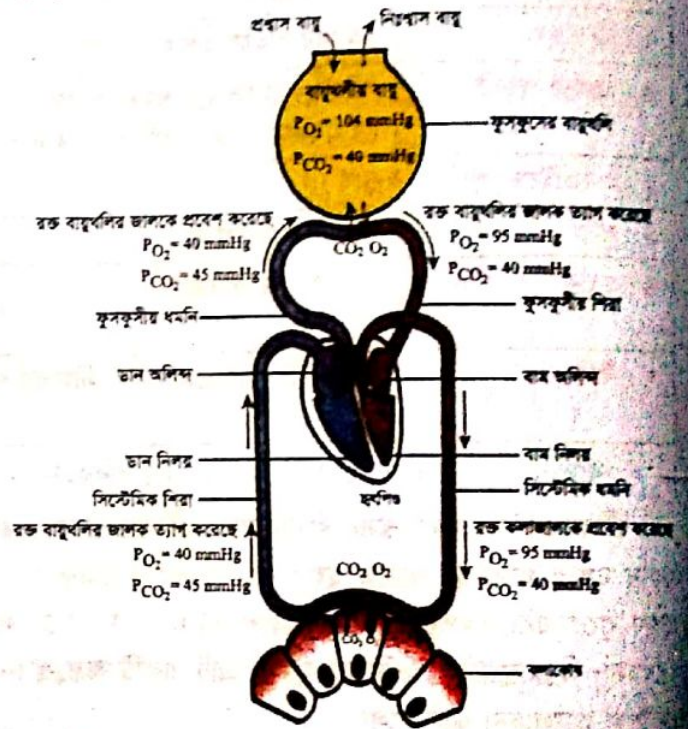 প্রশ্বাস বায়ু
নিঃশ্বাস বায়ু
বায়ুথলীয় বায়ু
PO2= 104 mmHg
PCO2= 40 mmHg
ফুসফুসের বায়ুথলি
রক্ত বায়ুথলির জালকে প্রবেশ করেছে
PO2= 40 mmHg
PCO2= 45 mmHg
রক্ত বায়ুথলির জালক ত্যাগ করেছে
PO2= 95 mmHg
PCO2= 40 mmHg
CO2 O2
ফুসফুসীয় ধমনি
ফুসফুসীয় শিরা
ডান অলিন্দ
বাম অলিন্দ
ডান নিলয়
বাম নিলয়
সিস্টেমিক শিরা
হৃৎপিণ্ড
সিস্টেমিক ধমনি
রক্ত বায়ুথলির জালক ত্যাগ করেছে
PO2= 40 mmHg
PCO2= 45 mmHg
রক্ত কলাজালকে প্রবেশ করেছে
PO2= 95 mmHg
PCO2= 40 mmHg
CO2 O2
CO2
কলাকোষ